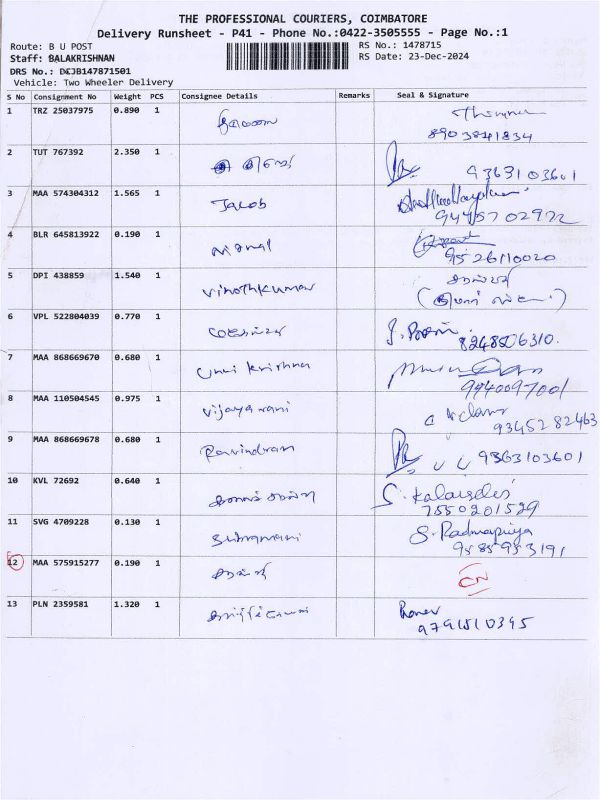 THE PROFESSIONAL COURIERS, COIMBATORE
Delivery Runsheet - P41 - Phone No.:0422-3505555 - Page No.:1
Route: B U POST RS No.: 1478715
Staff: BALAKRISHNAN RS Date: 23-Dec-2024
DRS No.: DCJB147871501
Vehicle: Two Wheeler Delivery
S No Consignment No Weight PCS Consignee Details Remarks Seal & Signature
1 TRZ 25037975 0.890 1
8903841834
2 TUT 767392 2.350 1
9363103601
3 MAA 574304312 1.565 1 Jacob
9445702922
4 BLR 645813922 0.190 1
9526110020
5 DPI 438859 1.540 1 Vinothkumar
6 VPL 522804039 0.770 1
8248506310.
7 MAA 868669670 0.680 1 Unni Krishna
9940097001
8 MAA 110504545 0.975 1 Vijayarani
9345282463
9 MAA 868669678 0.680 1 Ravindran 9363103601
10 KVL 72692 0.640 1 S. Kalaiselvi
7550201529
11 SVG 4709228 0.130 1 Subramani S. Padmapriya
9585953191
12 MAA 575915277 0.190 1 CN
13 PLN 2359581 1.320 1
9791510395